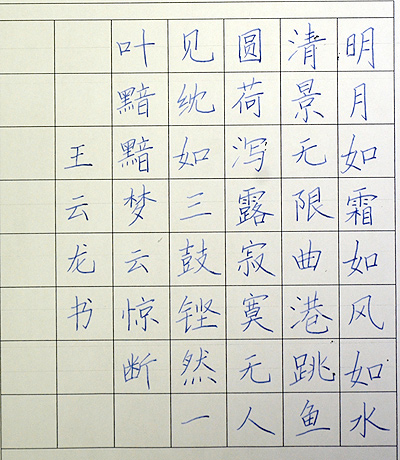 明月如霜如风如水
清景无限曲港跳鱼
圆荷泻露寂寞无人
见𬘘如三鼓铿然一
叶黯黯梦云惊断
王云龙书